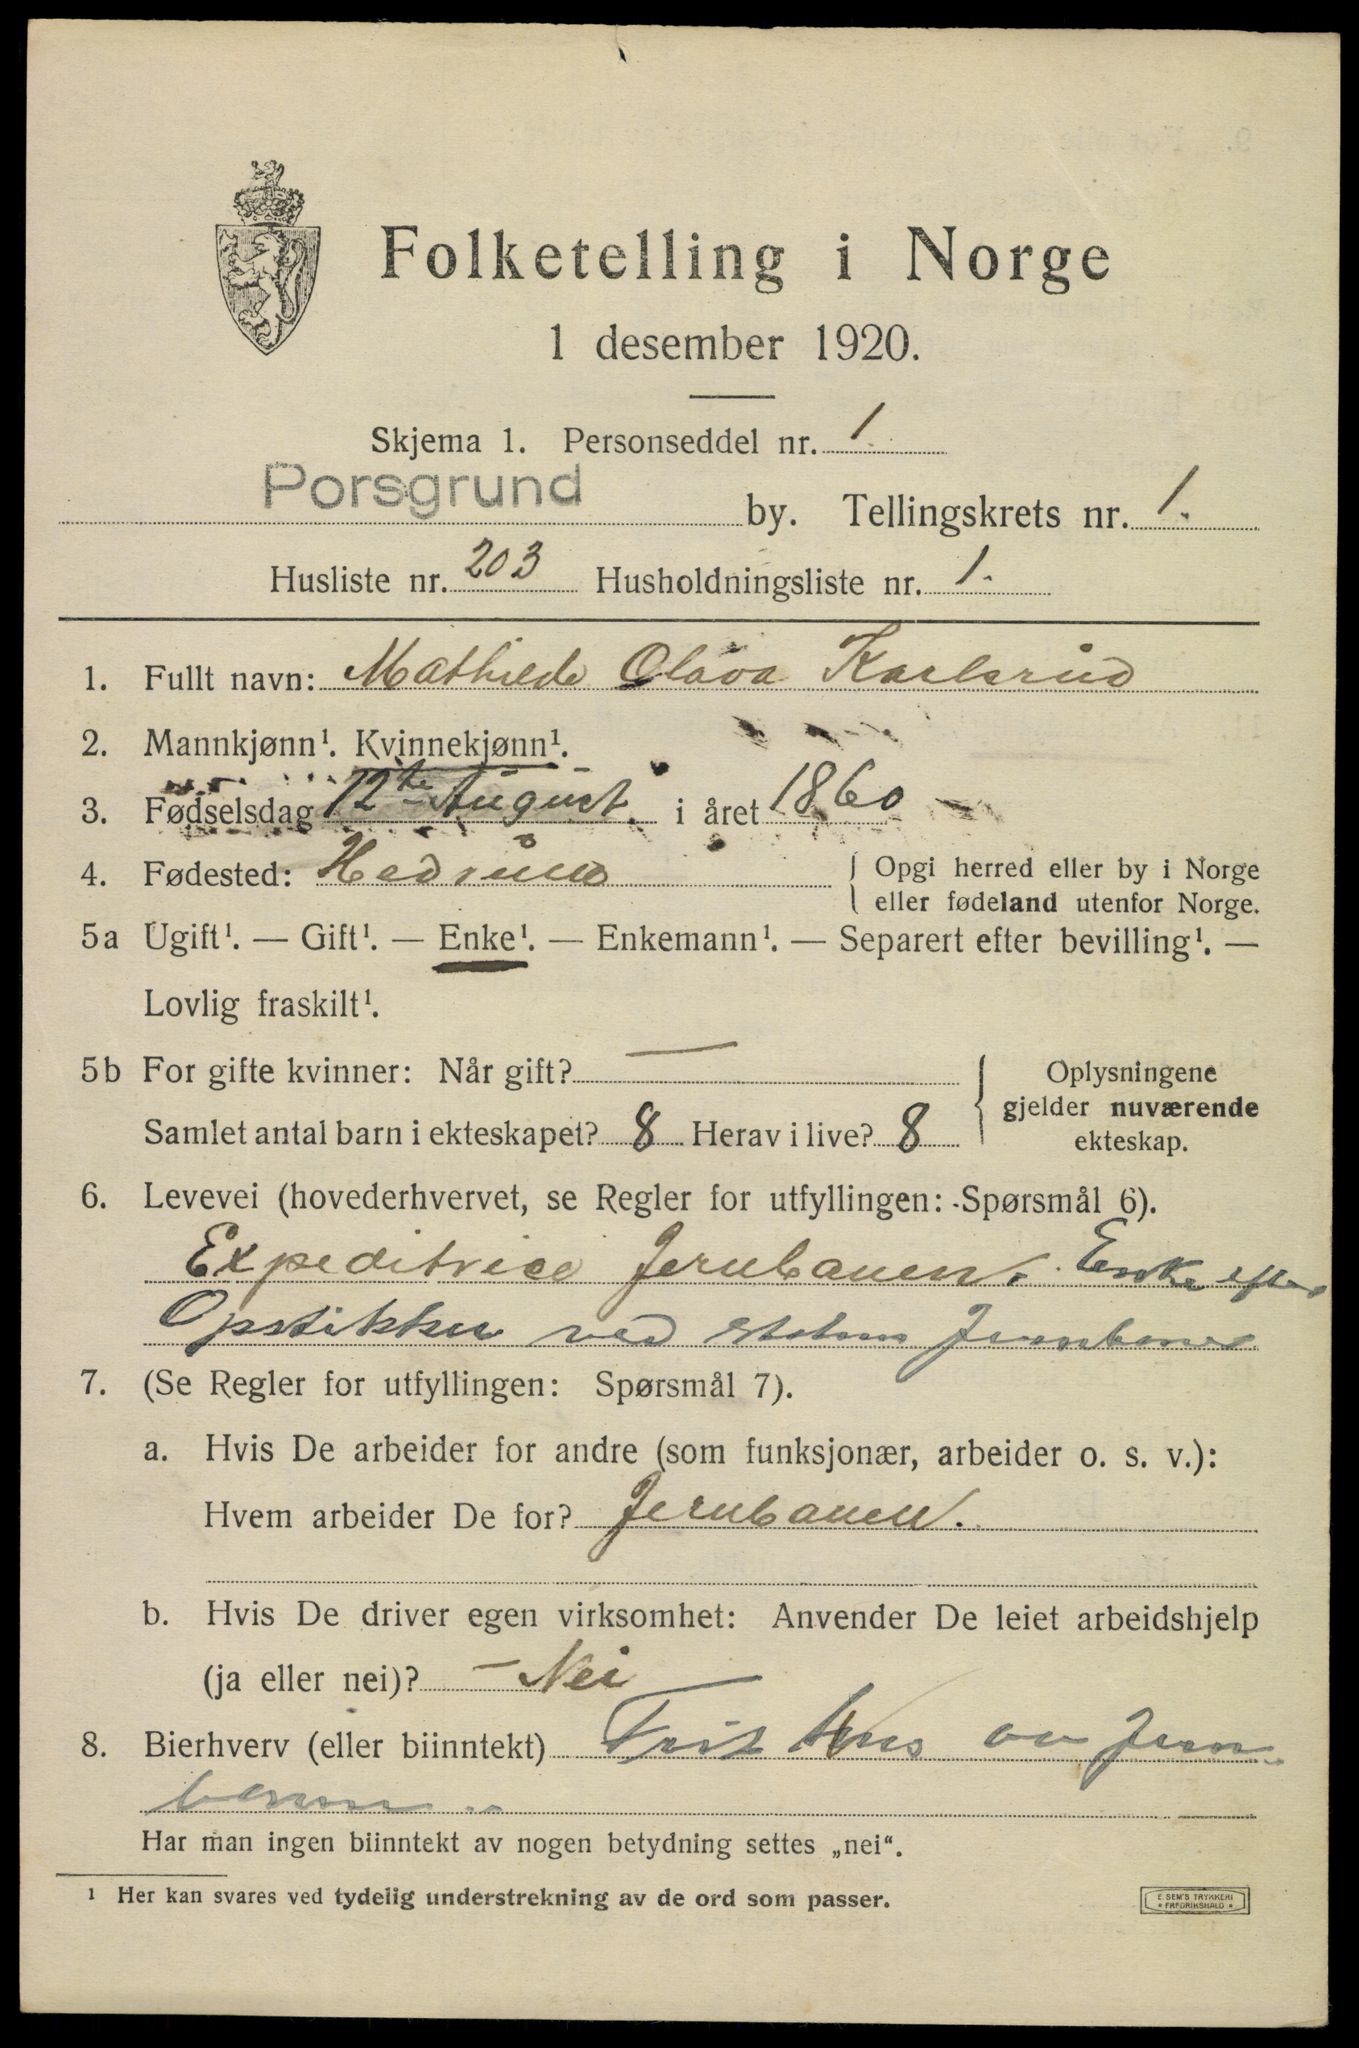 Folketelling i Norge
1 desember 1920.
Skjema 1. Personseddel nr. 1.
Porsgrund by. Tellingskrets nr. 1.
Husliste nr. 203 Husholdningsliste nr. 1.
1. Fullt navn: Mathilde Olava Karlsrud
2. Mannkjønn¹. Kvinnekjønn¹.
3. Fødselsdag 12te August i året 1860
4. Fødested: Hedrum { Opgi herred eller by i Norge
eller fødeland utenfor Norge.
5a Ugift¹. — Gift¹. — Enke¹. — Enkemann¹. — Separert efter bevilling¹. —
Lovlig fraskilt¹.
5b For gifte kvinner: Når gift? —
Samlet antal barn i ekteskapet? 8 Herav i live? 8
{ Oplysningene
gjelder nuværende
ekteskap.
6. Levevei (hovederhvervet, se Regler for utfyllingen: Spørsmål 6).
Expeditrice Jernbanen. Enke efter
Opsikker ved statens Jernbaner
7. (Se Regler for utfyllingen: Spørsmål 7).
a. Hvis De arbeider for andre (som funksjonær, arbeider o. s. v.):
Hvem arbeider De for? Jernbanen.
b. Hvis De driver egen virksomhet: Anvender De leiet arbeidshjelp
(ja eller nei)? — Nei
8. Bierhverv (eller biinntekt) Frit hus av Jern
banen
Har man ingen biinntekt av nogen betydning settes „nei“.
¹ Her kan svares ved tydelig understrekning av de ord som passer.
E. SEM'S TRYKKERI
* FREDRIKSHALD *